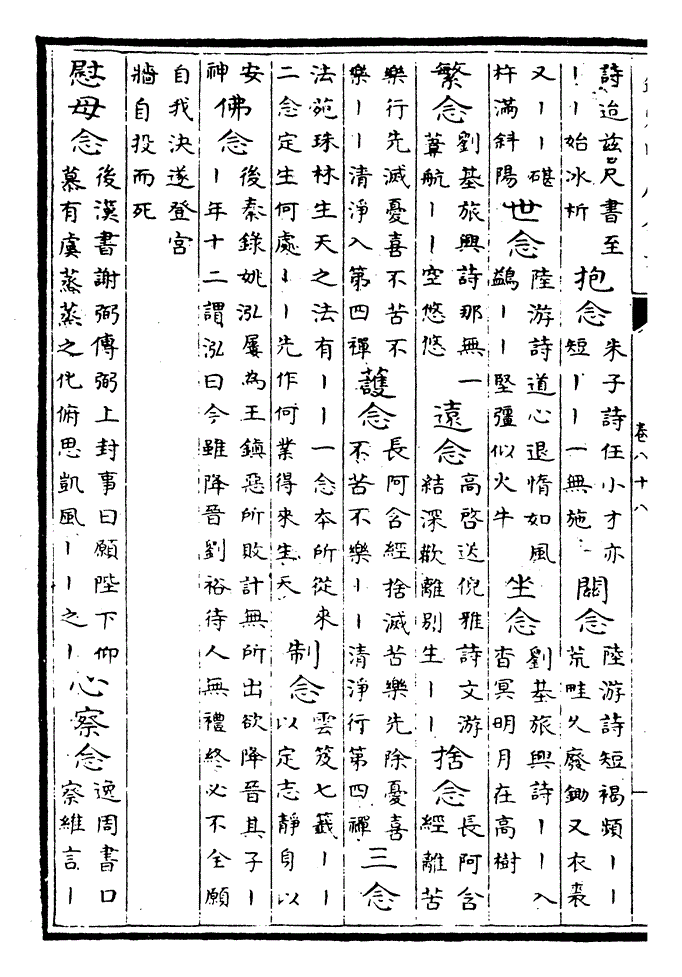 卷八十八
一
詩迨茲尺書至
丨丨始冰析
抱念
朱子詩任小才亦
短丨丨一無施
關念
陸游詩短褐頻丨丨
荒畦久廢鋤又衣裘
又丨丨碪
杵滿斜陽
世念
陸游詩道心退惰如風
鷁丨丨堅彊似火牛
坐念
劉基旅興詩丨丨入
杳冥明月在高樹
繁念
劉基旅興詩那無一
葦航丨丨空悠悠
遠念
高啓送倪雅詩文游
結深歡離別生丨丨
捨念
長阿含
經離苦
樂行先滅憂喜不苦不
樂丨丨清淨入第四禪
護念
長阿含經捨滅苦樂先除憂喜
不苦不樂丨丨清淨行第四禪
三念
法苑珠林生天之法有丨丨一念本所從來
二念定生何處丨丨先作何業得來生天
制念
雲笈七籤丨丨
以定志靜身以
安
神
佛念
後秦錄姚泓屢為王鎮惡所敗計無所出欲降晉其子丨
丨年十二謂泓曰今雖降晉劉裕待人無禮終必不全願
自我決遂登宮
牆自投而死
慰母念
後漢書謝弼傳弼上封事曰願陛下仰
慕有虞蒸蒸之化俯思凱風丨丨之丨
心察念
逸周書口
察維言丨